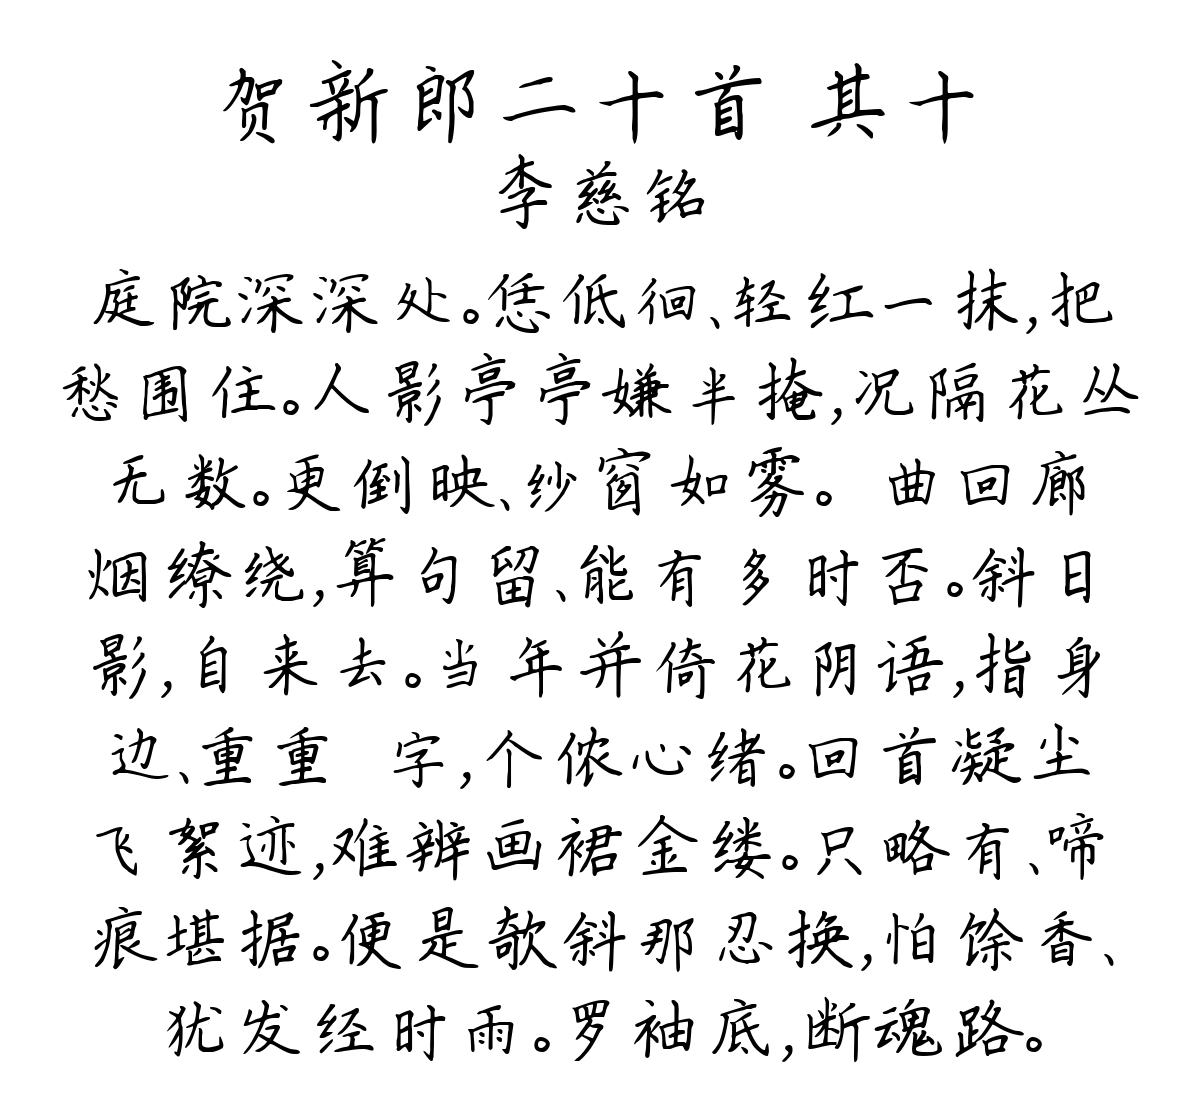 贺新郎二十首 其十
李慈铭
庭院深深处。恁低徊、轻红一抹,把
愁围住。人影亭亭嫌半掩,况隔花丛
无数。更倒映、纱窗如雾。 曲回廊
烟缭绕,算句留、能有多时否。斜日
影,自来去。当年并倚花阴语,指身
边、重重 字,个侬心绪。回首凝尘
飞絮迹,难辨画裙金缕。只略有、啼
痕堪据。便是欹斜那忍换,怕馀香、
犹发经时雨。罗袖底,断魂路。